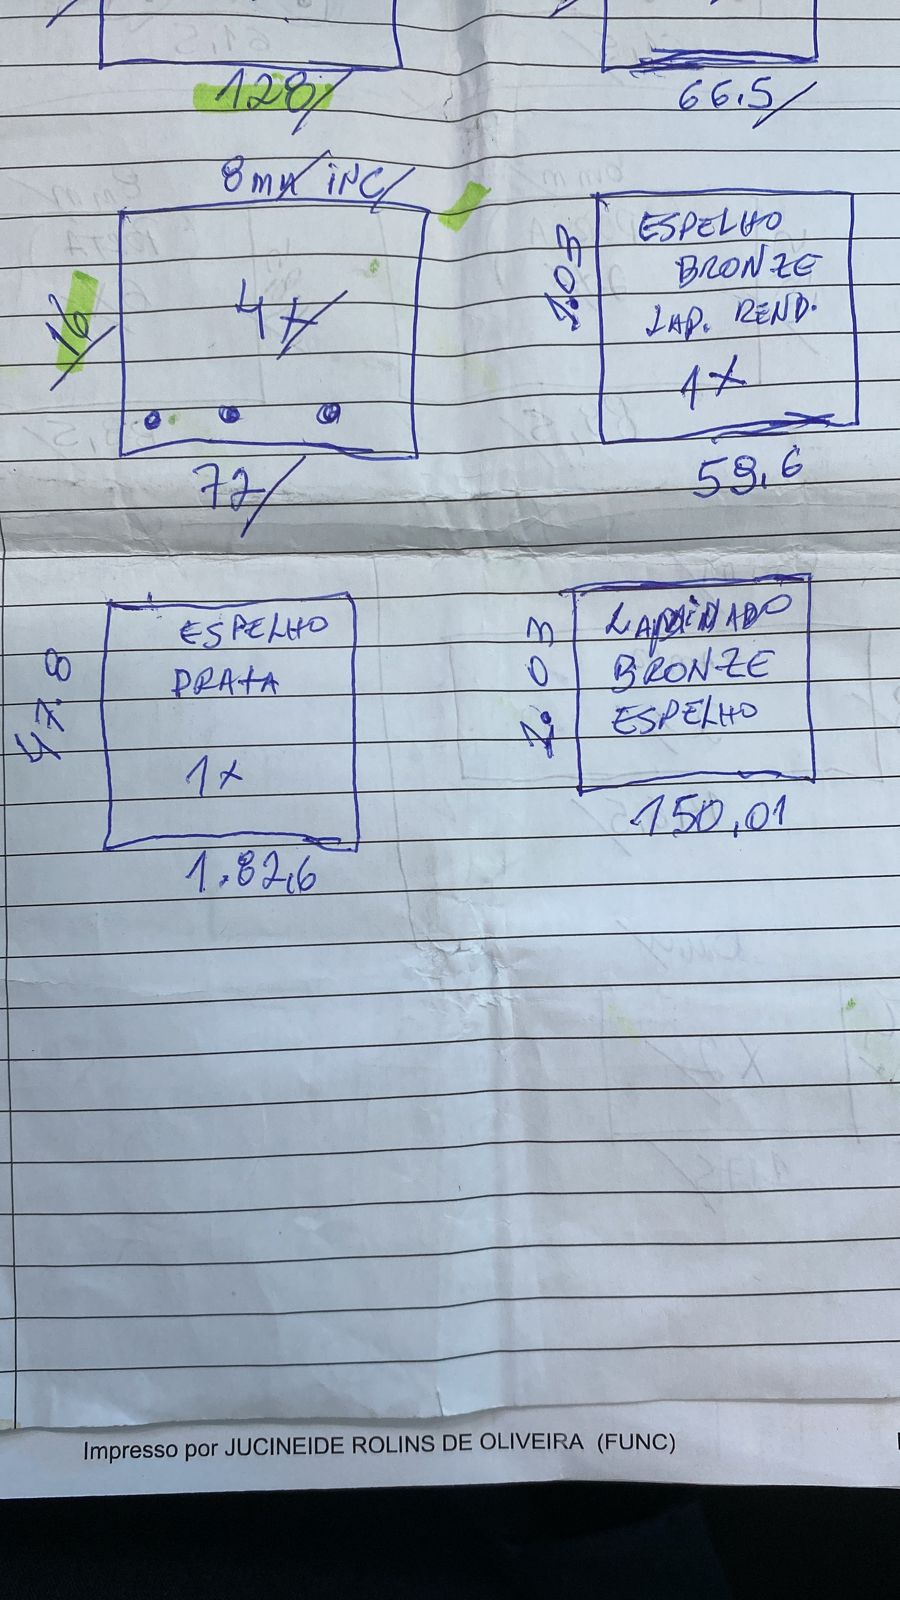 128/
66.5/
8mm iNC/
16/
4x
72/
ESPELHO
BRONZE
LAP. REND.
1x
59,6
ESPELHO
PRATA
1x
47.8
1.82,6
LAPIDADO
BRONZE
ESPELHO
2.03
150,01
Impresso por JUCINEIDE ROLINS DE OLIVEIRA (FUNC)